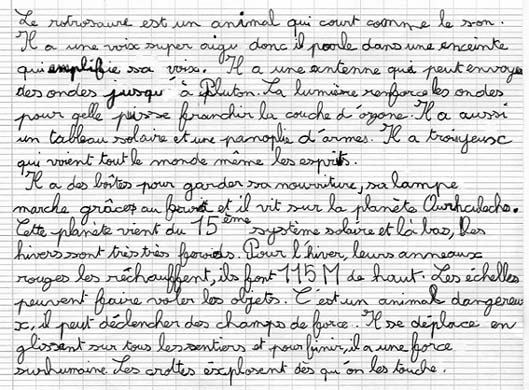 Le rotrosaure est un animal qui court comme le son.
Il a une voix super aigu donc il parle dans une enceinte
qui emplifie sa voix. Il a une antenne qui peut envoye
des ondes jusqu'à Pluton. La lumière renforce les ondes
pour qelle puisse franchir la couche d'ozone. Il a aussi
un tableau solaire et une panoplie d'armes. Il a trois yeux
qui voient tout le monde même les esprits.
Il a des boîtes pour garder sa nourriture, sa lampe
marche grâces au et il vit sur la planète
Cette planète vient du 15ème système solaire et là bas, les
hivers sont très très froids. Pour l'hiver, leurs anneaux
rouges les réchauffent, ils font 115M de haut. Les échelles
peuvent faire voler les objets. C'est un animal dangereu
x, il peut déclencher des champs de force. Il se déplace en
glissent sur tous les sentiers et pour finir, il a une force
surhumaine. Les crottes éxplosent dès qu'on les touche.